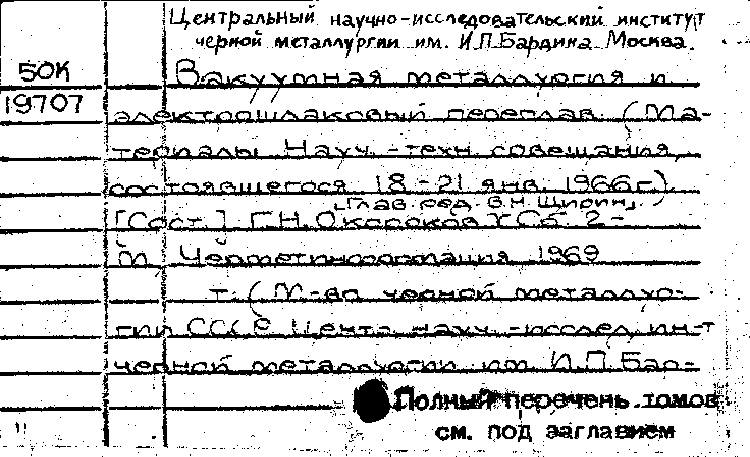 Центральный научно-исследовательский институт
черной металлургии им. И.П.Бардина. Москва.
50К
Вакуумная металлургия и
19707
электрошлаковый переплав. (Ма-
териалы Науч.-техн. совещания,
состоявшегося 18-21 янв. 1966г.)
Глав. ред. В.Н. Щирин.
[Сост.] Г.Н. Окороков Сб. 2-
М. Черметинформация 1969
т. (М-во черной металлур-
гии СССР. Центр. науч.-исслед. ин-т
черной металлургии им. И.П. Бар-
Полный перечень томов
см. под заглавием